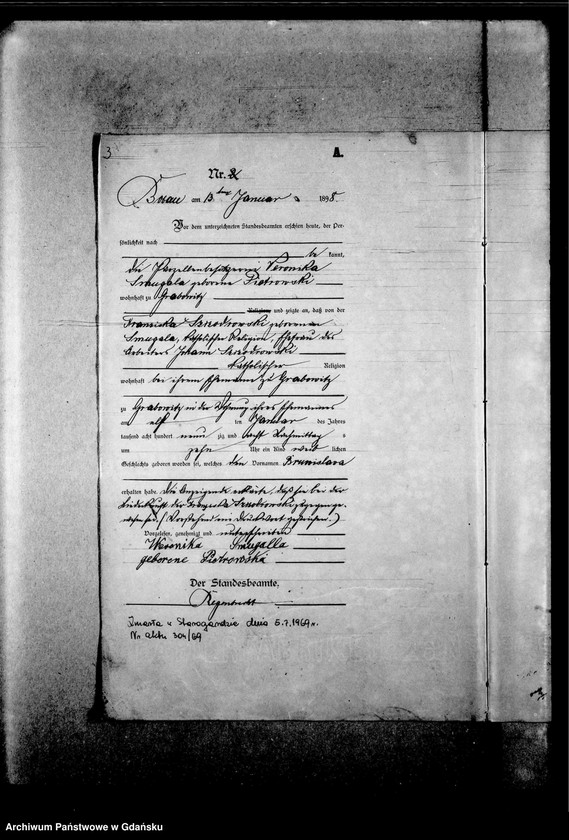 3
A.
Nr. 2
Bresau am 13ten Januar 1898.
Vor dem unterzeichneten Standesbeamten erschien heute, der Per-
sönlichkeit nach
be kannt,
die Parzellenbesitzerin Veronika
Smugala geborene Piotrowski
wohnhaft zu Grabowitz
Religion und zeigte an, daß von der
Franziska Sznodrowski geborenen
Smugala, katholischer Religion, Ehefrau des
Arbeiters Johann Sznodrowski
katholischer Religion
wohnhaft bei ihrem Ehemanne zu Grabowitz
zu Grabowitz in der Wohnung ihres Ehemannes
am elf ten Januar des Jahres
tausend acht hundert neun zig und acht Nachmittags
um zehn Uhr ein Kind weib lichen
Geschlechts geboren worden sei, welches den Vornamen Bronislava
erhalten habe. Die Anzeigende erklärte, daß sie bei der
Niederkunft der Franziska Sznodrowski zugegen ge-
wesen sei. (Vorstehend ein Druckwort gestrichen.)
Vorgelesen, genehmigt und unterschrieben
Weronika Smugalla
geborene Piotrowska
Der Standesbeamte.
Zmarła w Starogardzie dnia 5.7.1969 r.
Nr. aktu 304/69
Archiwum Państwowe w Gdańsku